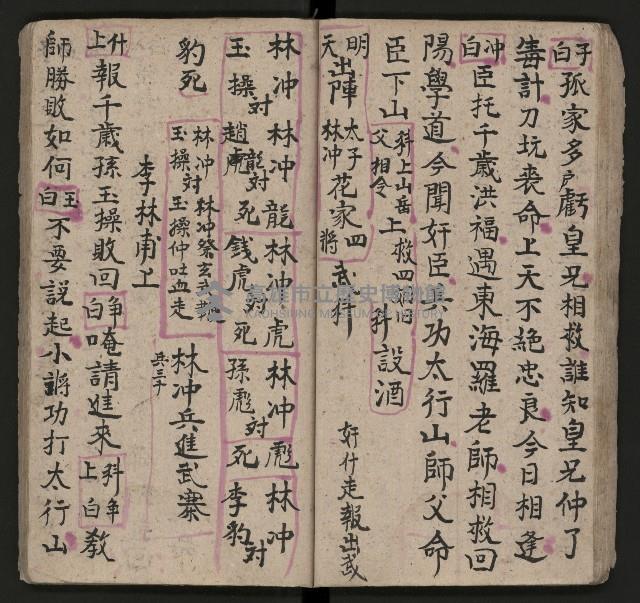 子白孤家多戶虧皇兄相救誰知皇兄仲了
毒計刀坑喪命上天不絕忠良今日相逢
冲白臣托千歲洪福遇東海羅老師相救回
陽學道今聞奸臣兵功太行山師父命
臣下山科上山岳父相令上救四將旧升設酒
明天出陣太子林冲花家四將武科
軒什走報出武
林冲林冲龍林冲虎林冲彪林冲
玉操対趙虎龍対死錢虎対死孫彪対死李豹対
豹死林冲玉操対林冲祭玄武玉操仲吐血走林冲兵進武寨兵三千
李林甫上
什上報千歲孫玉操敗回争白唵請進來科争上白教
師勝敗如何玉白不要説起小將功打太行山
高雄市立歷史博物館
KAOHSIUNG MUSEUM OF HISTORY